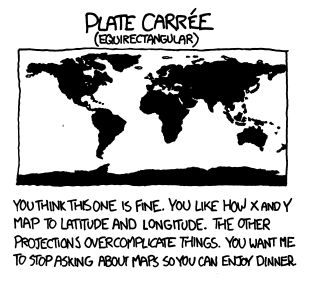 PLATE CARRÉE
(EQUIRECTANGULAR)
YOU THINK THIS ONE IS FINE. YOU LIKE HOW X AND Y
MAP TO LATITUDE AND LONGITUDE. THE OTHER
PROJECTIONS OVERCOMPLICATE THINGS. YOU WANT ME
TO STOP ASKING ABOUT MAPS SO YOU CAN ENJOY DINNER.